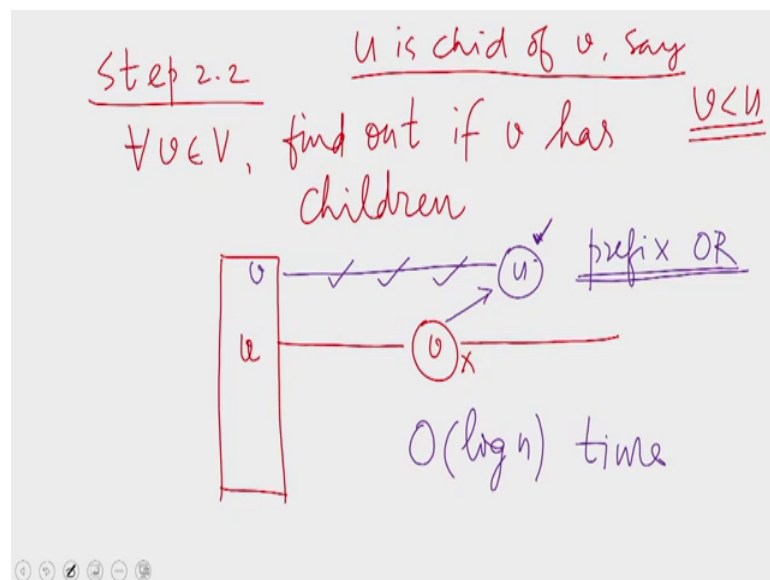 Step 2.2
u is chid of v, say
∀v∈V, find out if v has
v<u
children
v
u
prefix OR
u
v
x
O(log n) time